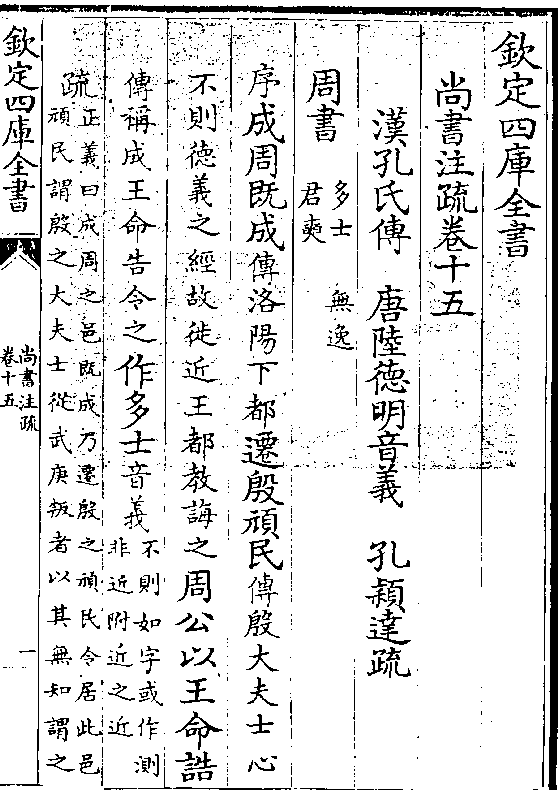 欽定四庫全書
尚書注疏卷十五
漢孔氏傳　唐陸德明音義　孔穎達疏
周書
多士　無逸
君奭
序成周既成傳洛陽下都遷殷頑民傳殷大夫士心
不則德義之經故徙近王都教誨之周公以王命誥
傳稱成王命告令之作多士音義
不則如字或作測
非近附近之近
疏
正義曰成周之邑既成乃遷殷之頑民令居此邑
頑民謂殷之大夫士從武庚叛者以其無知謂之
欽定四庫全書
尚書注疏
卷十五
一